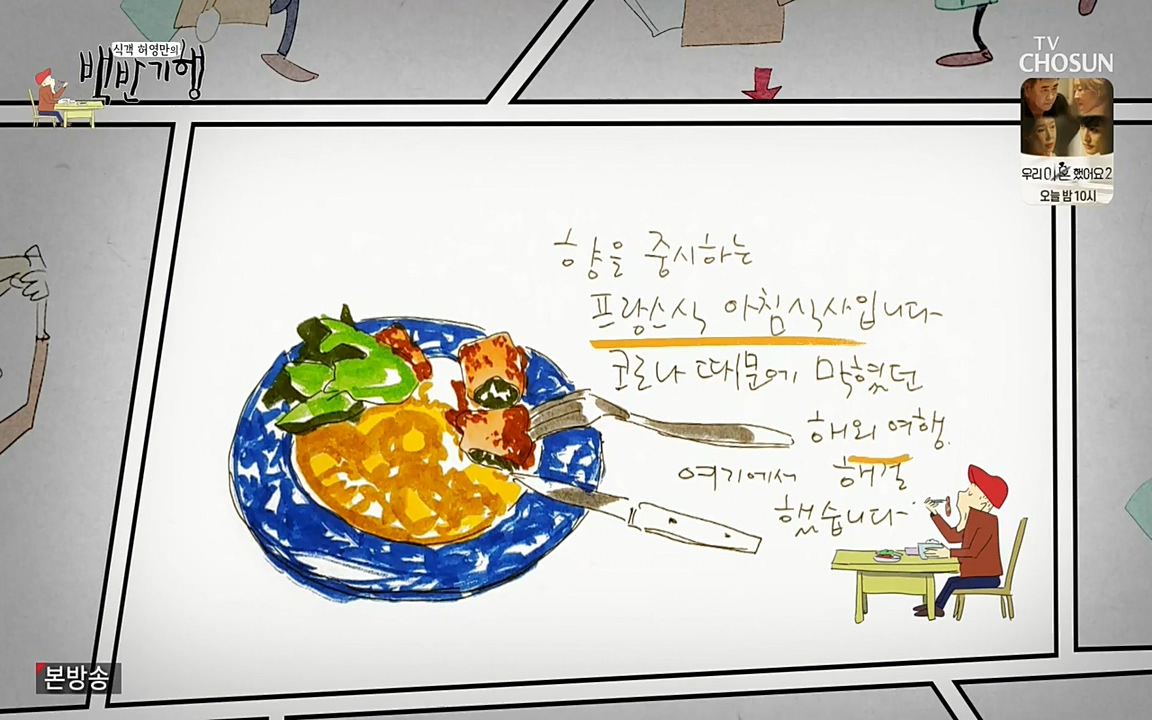 식객 허영만의
백반기행
TV
CHOSUN
우리 이혼 했어요 2
오늘 밤 10시
향을 중시하는
프랑스식 아침식사입니다
코로나 때문에 막혔던
해외여행.
여기에서 해결
했습니다.
본방송